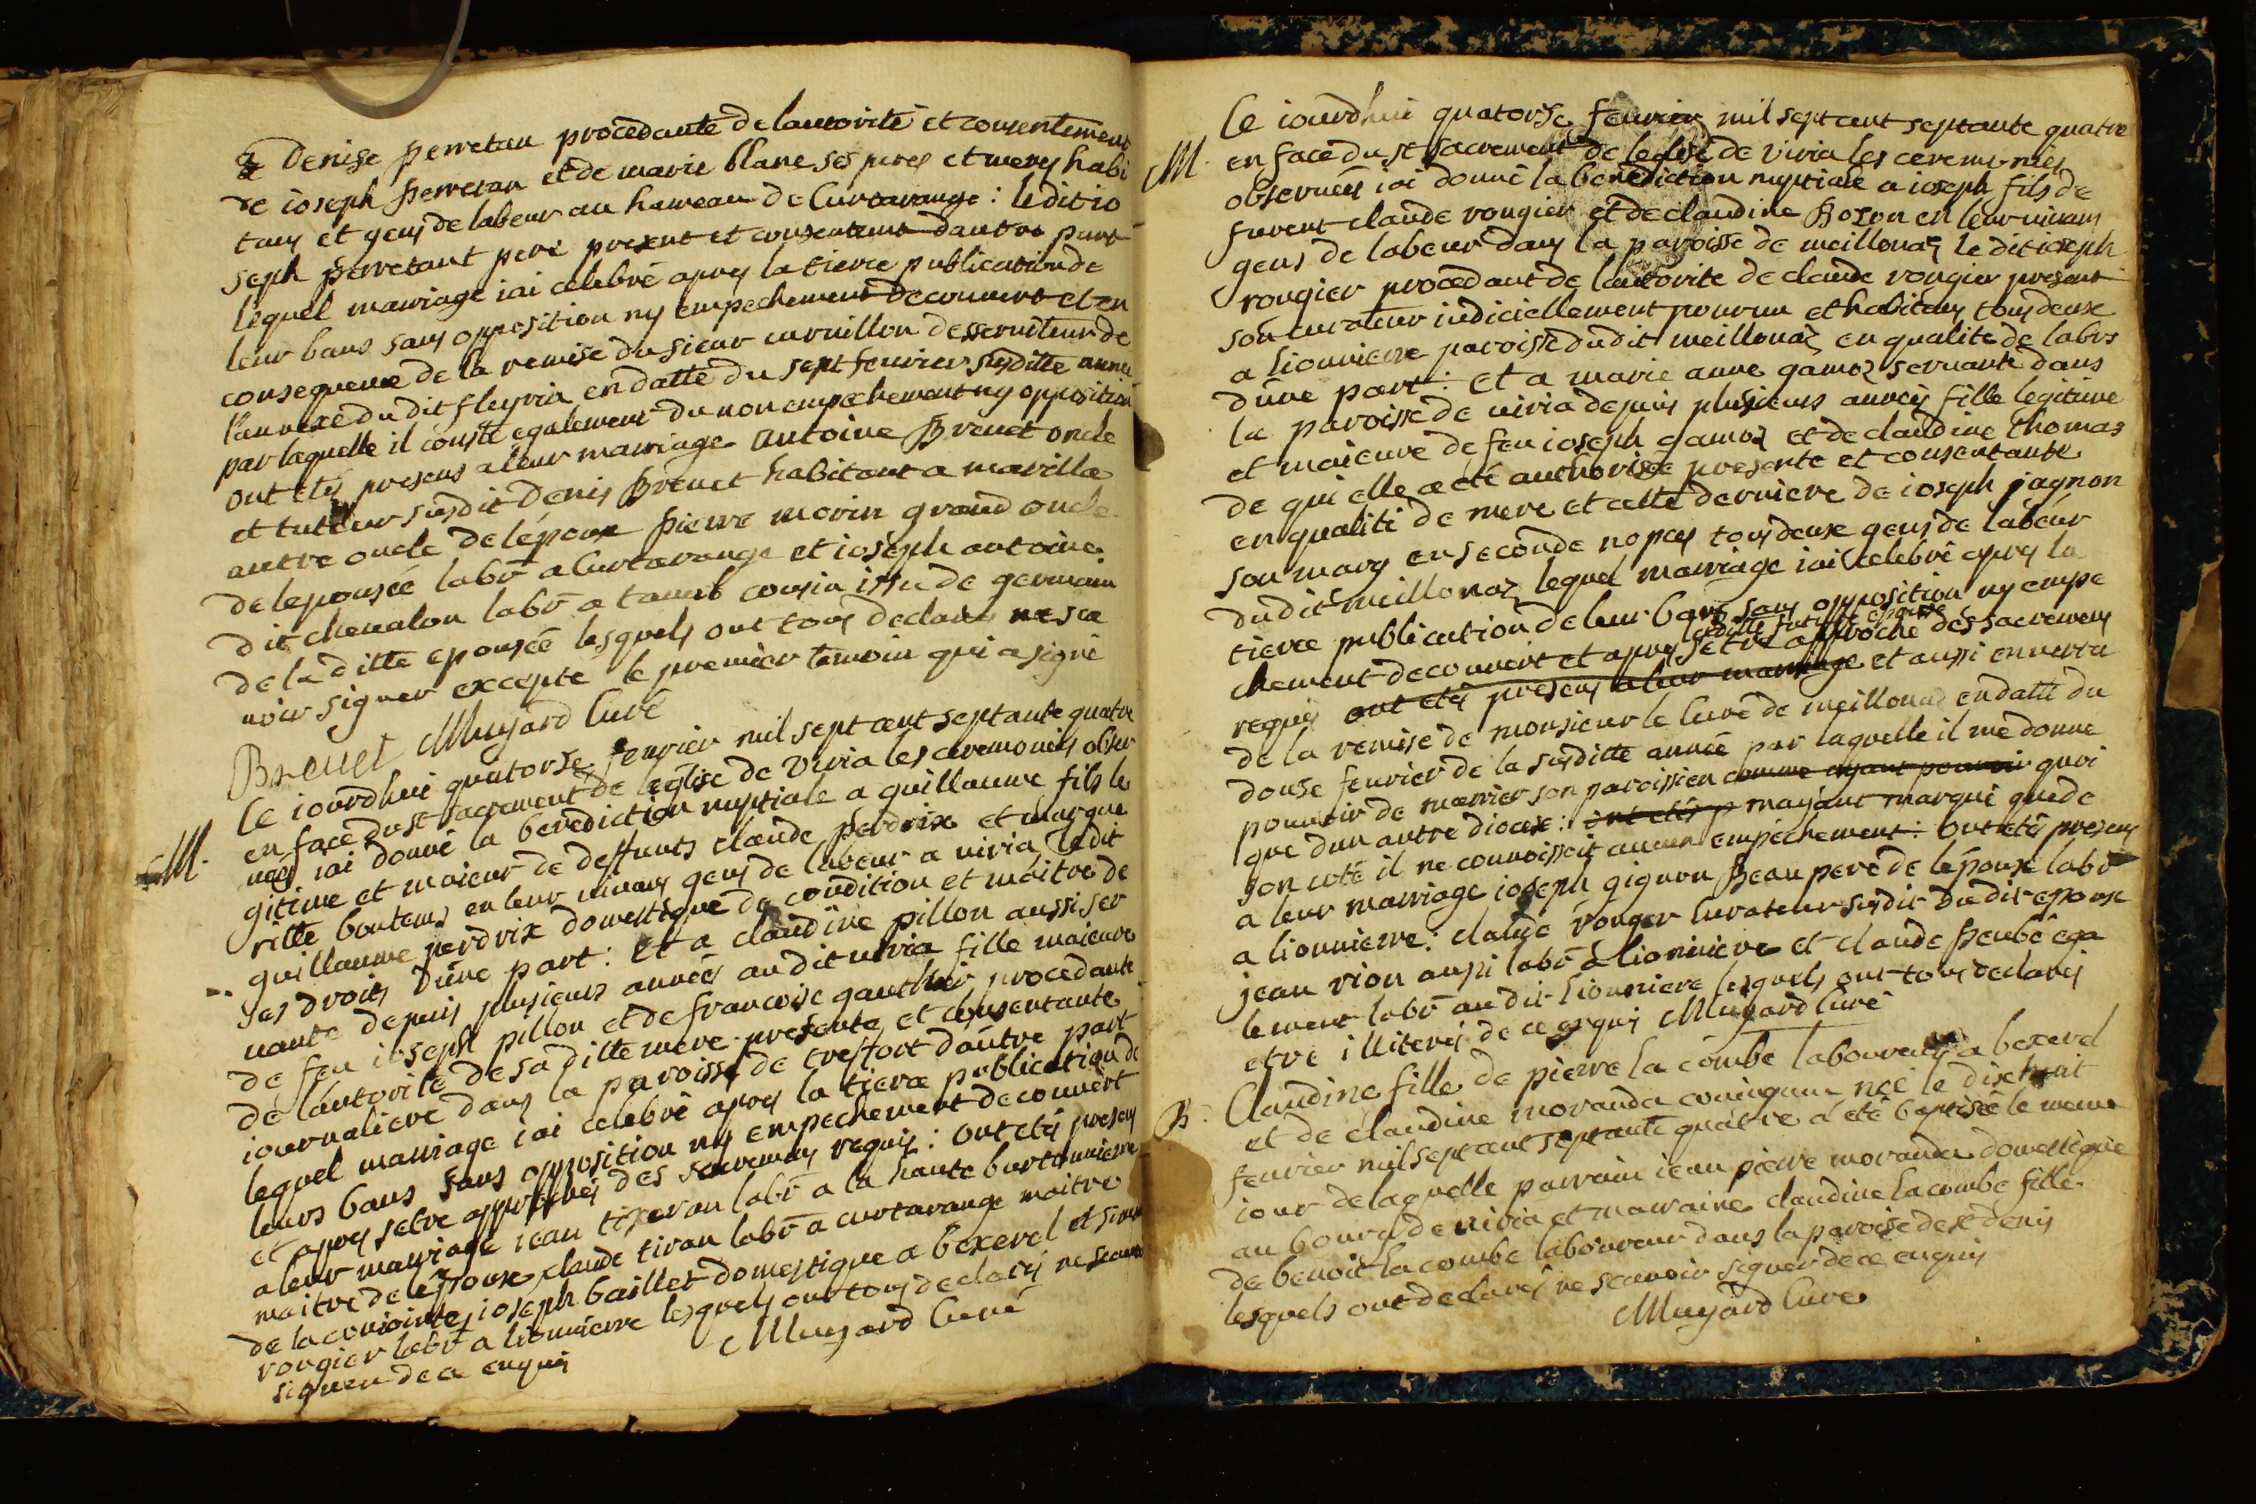 Denise perretan procedante delautorité et consentement
de ioseph perretan et de marie blanc ses peres et meres habi
tans et gens de labeur au hameau de Curtarange : ledit io
seph perretant pere present et consentent dautre part
lequel marriage iai celebré apres la tierce publication de
leur bans sans opposition ny empechement decouvert et en
consequence de la remise du sieur curnillon desserviteur de
l'annexe du dit fleyria en datte du sept fevrier susditte année
par laquelle il conste egalement du non empechement ny opposition
ont etés presens a leur marriage antoine Brevet oncle
et tutteur susdit Denis Brevet habitant a marilla
autre oncle de lépoux pierre morin grand oncle
de lepousée labr a Curtarange et ioseph antoine
dit chevalon labr a tanvol cousin issu de germain
de la ditte epousée lesquels ont tous declarés ne sca
voir signer excepté le premier temoin qui a signé
Brevet Mugard Curé
M.
Ce iourdhui quatorse fevrier mil sept cent septante quatre
en face du st sacrement de leglise de Viria les ceremonies obser
vées iai donné la benediction nuptiale a guillaume fils le
gitime et maieur de deffunts claude perdrix et margue
ritte boutems en leur vivans gens de labeur a viria ledit
guillaume perdrix domestique de condition et maitre de
ses droits dune part : et a claudine pillon aussi ser
vante depuis plusieurs années au dit viria fille maieure
de feu ioseph pillon et de francoise gauthier procedante
de lautorité de sa ditte mere presente et consentante
iournaliere dans la paroisse de treffort dautre part
lequel marriage iai celebré apres la tierce publication de
leurs bans sans opposition ny empechement decouvert
et apres setre approchés des sacremens requis : ont etés presens
a leur marriage iean tixeran labr a la haute burtonnierre
maitre de lépoux claude tiran labr a curtarange maitre
de la conjointe, ioseph baillet domestique a bexerel et simon
rongier labr a lionnierre lesquels ont tous declarés ne scavoir
signer de ce enquis Mugard Curé
M.
Ce iourdhui quatorse fevrier mil sept cent septante quatre
en face du st sacrement de leglise de Viria les ceremonies
observées iai donné la benediction nuptiale a ioseph fils de
furent claude rongier et de claudine Bozon en leur vivans
gens de labeur dans la paroisse de meillonaz le dit ioseph
rongier procedant de lautorité de claude rongier present
son curateur iudiciellement pourvu et habitans tous deux
a lionnierre paroisse dudit meillonaz en qualite de labrs
dune part : et a marie anne gamoz servante dans
la paroisse de viria depuis plusieurs années fille legitime
et maieure de feu ioseph gamoz et de claudine thomas
de qui elle a eté authorisée presente et consentante
en qualité de mere et cette derniere de ioseph jagnon
son mary en seconde nopces tous deux gens de labeur
dudit meillonaz lequel marriage iai celebré apres la
tierce publication de leur bans sans opposition ny empe
ladite future epouse
chement decouvert et apres setre approché des sacremens
requis ont etés presens a leur marriage et aussi en vertu
de la remise de monsieur le Curé de meillonaz en datte du
douse fevrier de la susditte année par laquelle il me donne
pouvoir de marrier son paroissien comme ayant pouvoir quoi
que dun autre diocese : ont etés p mayant marqué que de
son coté il ne connoissoit aucun empéchement : Ont etés presens
a leur marriage ioseph gignon Beau pere de lépouse labr
a lionnierre : claude ronger Curateur susdit dudit epoux
jean rion aussi labr a lionniere et claude perbé ega
lement labr au dit lionniere lesquels ont tous declarés
etre illiterés de ce enquis Mugard Curé
B.
Claudine fille de pierre la combe laboureur a bexerel
et de claudine moranda coniugaux née le dixhuit
fevrier mil sept cent septante quatre a eté baptisée le meme
iour de laquelle parrain iean pierre moranda domestique
au bourg de viria et marraine claudine lacombe fille
de benoit la combe laboureur dans la paroisse de st denis
lesquels ont declarés ne scavoir signer de ce enquis
Mugard Curé